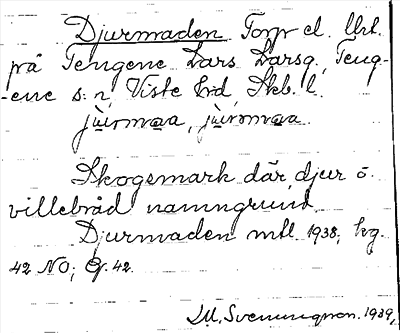 Djurmaden Torp el. Urt.
på Tengene Lars Larsg., Teng-
-ene s:n, Viste hrd Skb. l.
jùrmaa, jùrmaa.
Skogsmark där djur o.
villebråd namngrund.
Djurmaden mtl 1938; kvg.
42 NO; G. 42.
M. Svenungson. 1939,